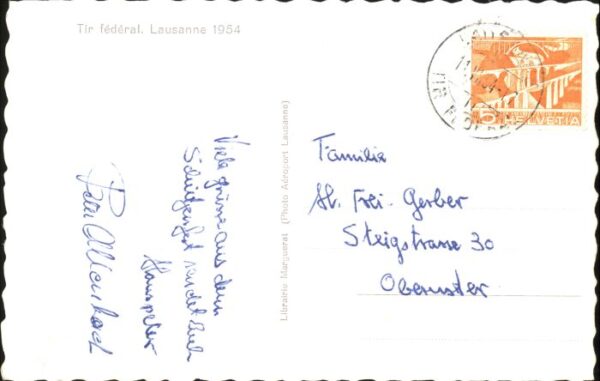 Tir fédéral. Lausanne 1954
Viele grüsse aus dem
Schützenfest sendet Euch
Hanspeter
Peter Allenbach
Librairie Marguerat (Photo Aéroport Lausanne)
TIR FEDERAL
5 HELVETIA
Familie
H. Frei-Gerber
Steigstrasse 30
Oberuster